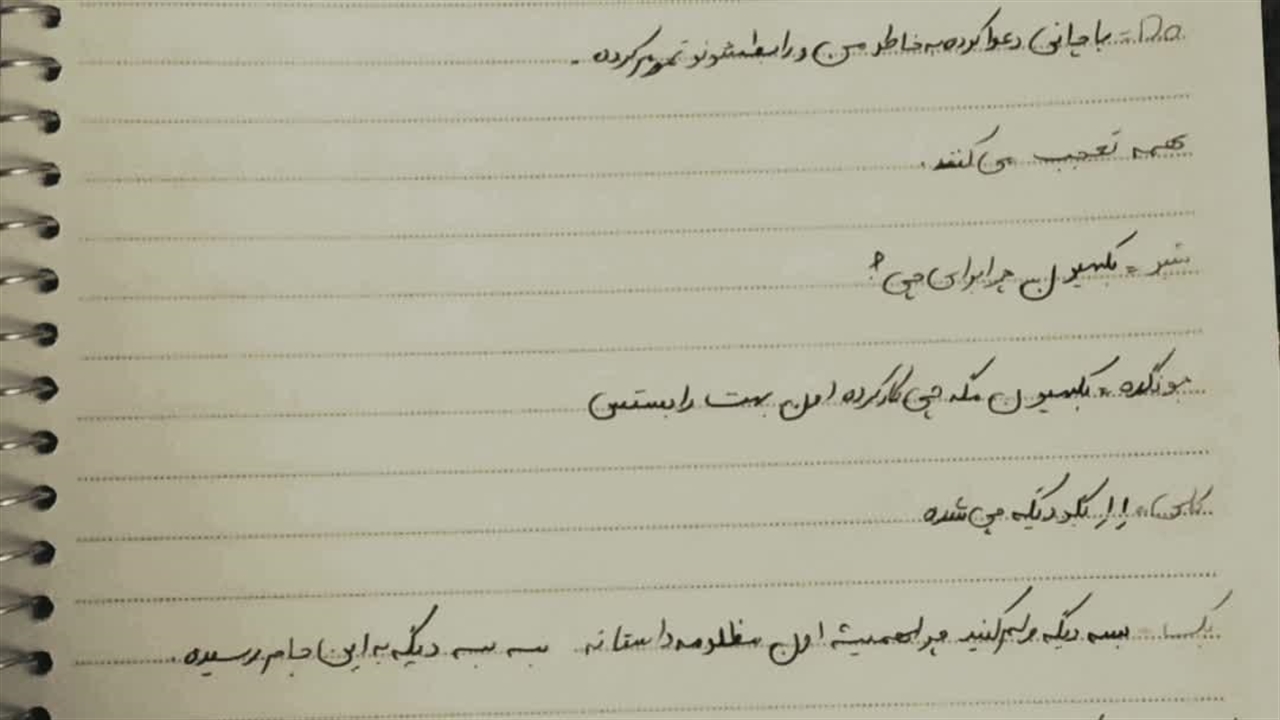 DO = با جانی دعوا کرده به خاطر من و رابطشونو تموم کرده .
همه تعجب می کنند .
شیر = بکهیون چرا برای چی ؟
جونگده = بکهیون مگه چی کار کرده اون بهت رابستس
کای = اِ اِ بگو دیگه چی شده
بک = بسه دیگه ولم کنید چرا همیشه اون مظلومه داستانه بسه بسه دیگه به این جام رسیده .